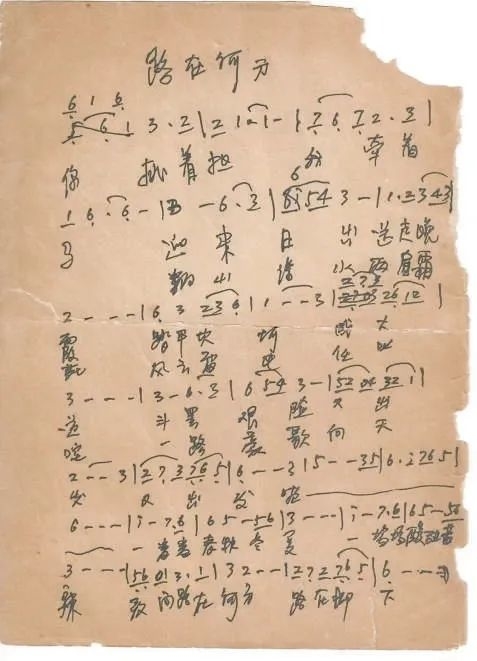 路在何方
6 1 6
5 6 1 3 . 2 | 2 1 . 1 - | 7 6 7 2 . 3 |
你 挑着担 牵着
1 6 . 6 - | 3 - 6 . 3 | 5 1 5 4 3 - | 1 . 2 3 4 3
马 迎来日出送走晚
翻山涉水两肩霜
2 - - - - | 6 . 3 2 3 6 | 1 - - - 3 | 2 6 1 2
霞 踏平坎坷 成大
风云雷电 任叱
3 - - - - | 3 - 6 . 3 | 6 5 4 3 - | 5 2 0 4 3 2 1 |
道 斗罢艰险 又出
咤 一路豪歌向天
2 - - 3 | 2 7 3 7 6 5 | 6 - - - 3 | 5 - - 3 5 | 6 . i 2 7 6 5 |
发 又出发 啦
6 - - - | i - 7 . 6 | 6 5 - 5 6 | 3 - - - | i - 7 . 6 | 6 5 - 5 6
一番番春秋冬夏 一场场酸甜苦
3 - - - | 5 6 0 1 3 . 1 | 3 2 - - | 2 7 2 7 6 5 | 6 - - -
辣 敢问路在何方 路在脚下